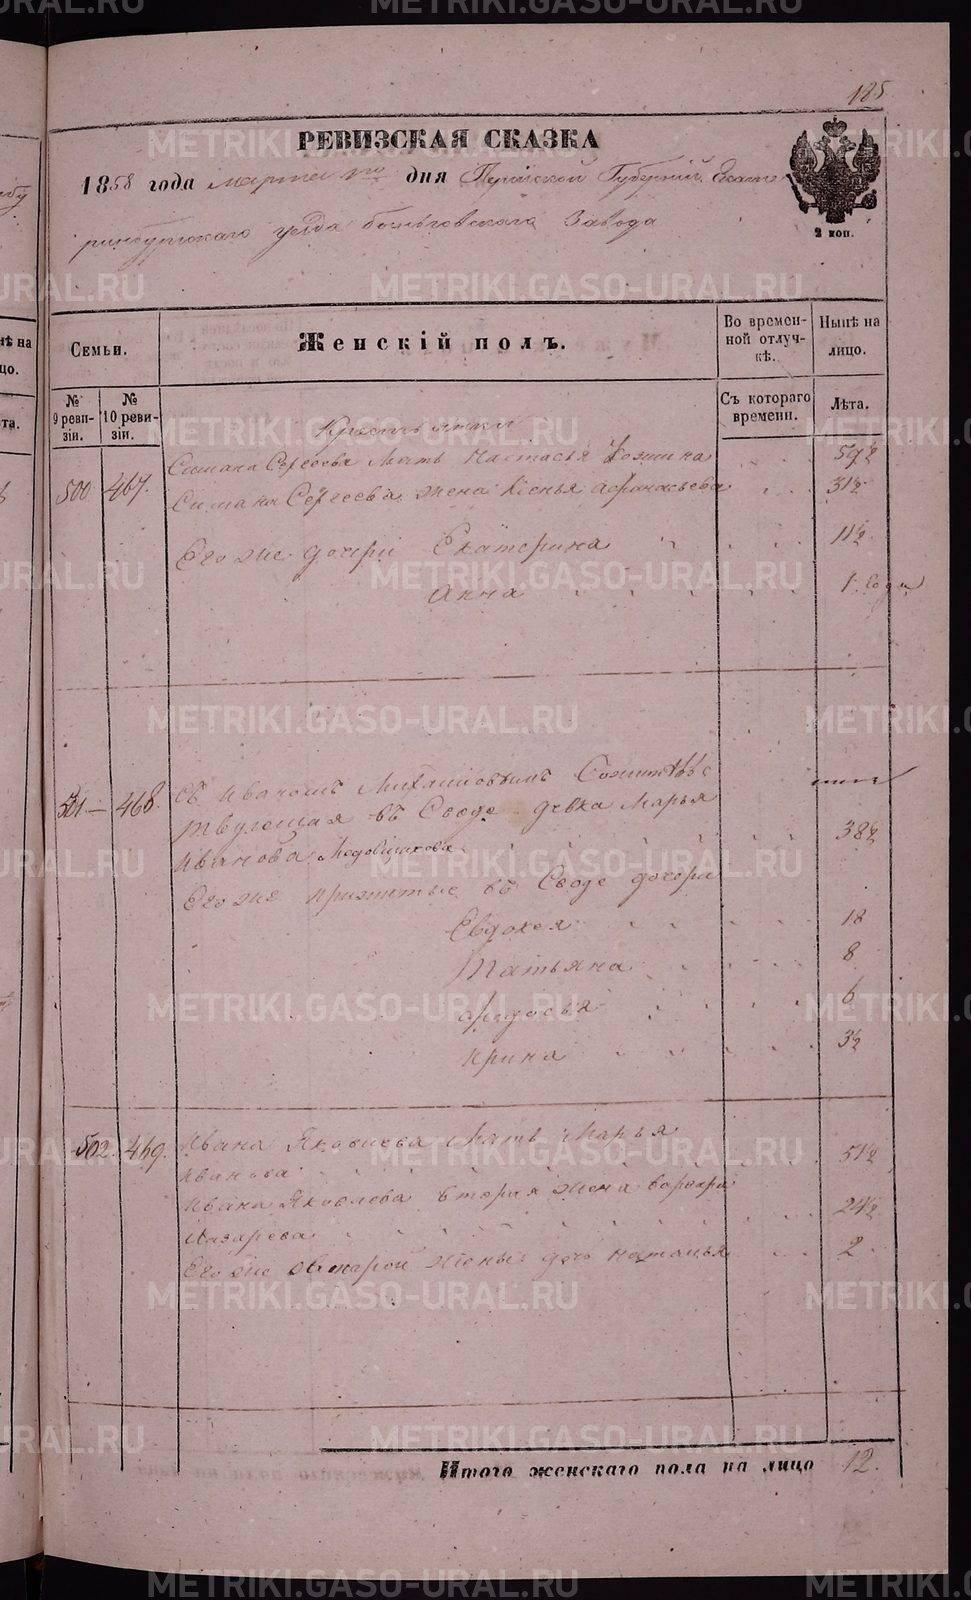 185
РЕВИЗСКАЯ СКАЗКА
1858 года марта дня Пермской Губерніи Екате
ринбургскаго уезда Завода
2 коп.
Семьи.
Женскій полъ.
Во времен-
ной отлуч-
кѣ.
Нынѣ на
лицо.
№
9 реви-
зіи.
№
10 реви-
зіи.
Съ котораго
времени.
Лѣта.
Крестьянки
Симана Сергеева Мать Настасья Фомина 59½
500 467. Симана Сергеева жена Ксенья Афанасьева 31½
Его же дочери Екатерина 11½
Анна 1 года
501 468. Съ Иваномъ Сожительс
твующая въ Сводѣ девка Марья
Иванова Медовщикова 38½
Его же прижитые въ Сводѣ дочери
Евдокея 18
Татьяна 8
Федосья 6
Ирина 3½
502. 469. Ивана Яковлева Мать Марья
Иванова 51½
Ивана Яковлева вторая жена Варвара
Лазарева 24½
Его же второй жены дочь Наталья 2
Итого женскаго пола на лицо 12.
METRIKI.GASO-URAL.RU